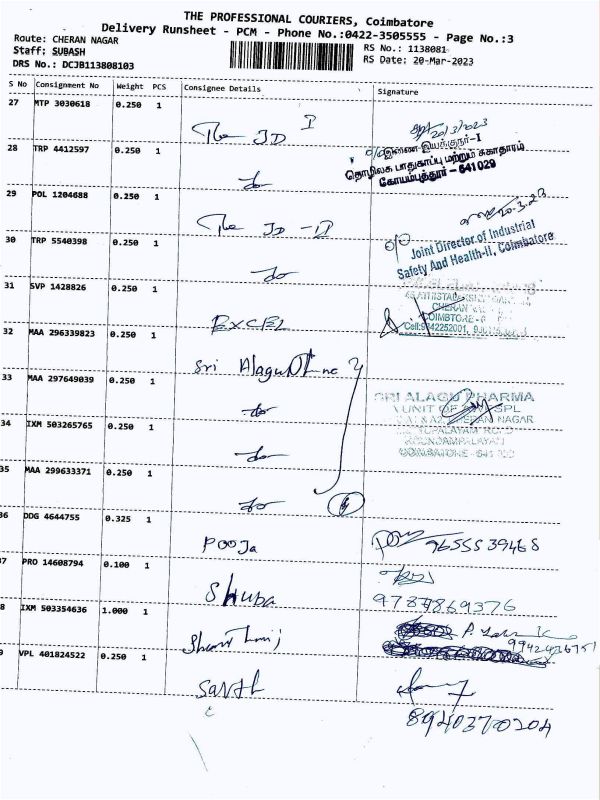 THE PROFESSIONAL COURIERS, Coimbatore
Delivery Runsheet - PCM - Phone No.:0422-3505555 - Page No.:3
Route: CHERAN NAGAR
RS No.: 1138081
Staff: SUBASH
RS Date: 20-Mar-2023
DRS No.: DCJB113808103
S No Consignment No Weight PCS Consignee Details Signature
27 MTP 3030618 0.250 1
The JD I
20/3/2023
28 TRP 4412597 0.250 1
do
o/o இணை இயக்குநர்-I
தொழிலக பாதுகாப்பு மற்றும் சுகாதாரம்
கோயம்புத்தூர் - 641 029
29 POL 1204688 0.250 1
The JD - II
20.3.23
30 TRP 5540398 0.250 1
do
o/o Joint Director of Industrial
Safety And Health-II, Coimbatore
31 SVP 1428826 0.250 1
EXCEL
CHERAN
COIMBTORE
32 MAA 296339823 0.250 1
Sri Alagu
33 MAA 297649039 0.250 1
do
SRI ALAGU PHARMA
A UNIT OF
CHERAN NAGAR
34 IXM 503265765 0.250 1
do
35 MAA 299633371 0.250 1
do
4
36 DDG 4644755 0.325 1
Pooja
9655539468
7 PRO 14608794 0.100 1
Shuba
9787869376
8 IXM 503354636 1.000 1
9942436751
9 VPL 401824522 0.250 1
8940370204